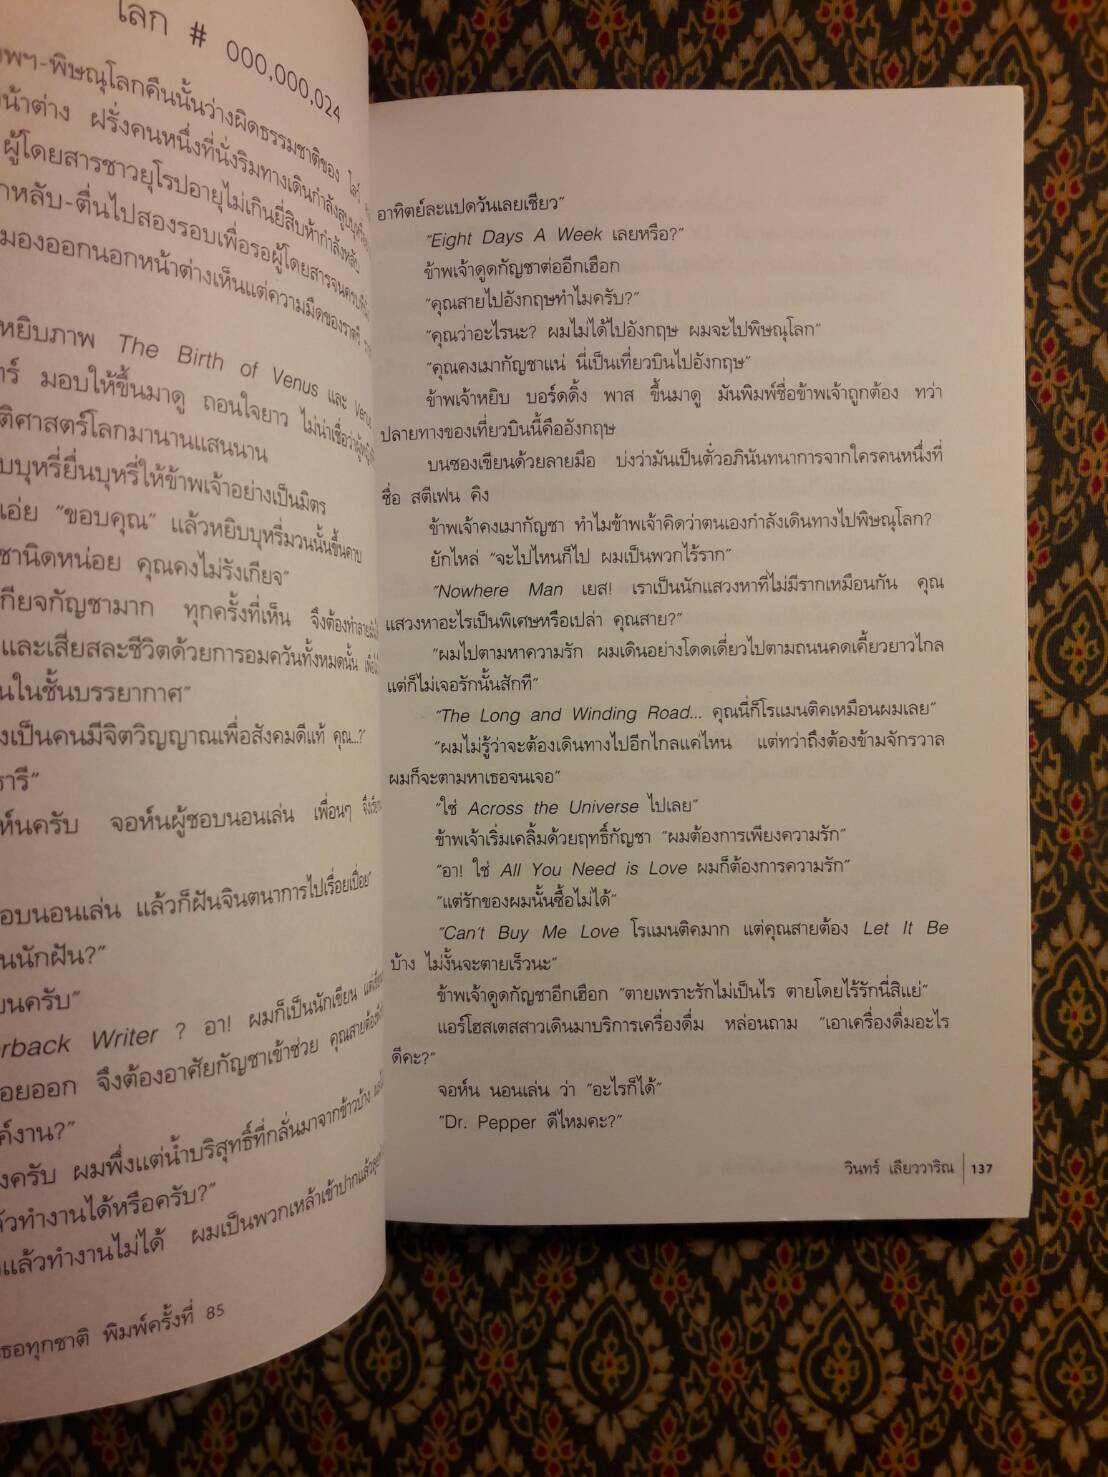 โลก # 000,000,024
พฯ-พิษณุโลกคืนนั้นว่างผิดธรรมชาติของ ไลร์
น้าต่าง ฝรั่งคนหนึ่งที่นั่งริมทางเดินกำลังสูบบุหรี่
ผู้โดยสารชาวยุโรปอายุไม่เกินยี่สิบห้ากำลังหลับ
หลับ-ตื่นไปสองรอบเพื่อรอผู้โดยสารจนครบ
มองออกนอกหน้าต่างเห็นแต่ความมืดของราตรี
หยิบภาพ The Birth of Venus และ Venus
มอบให้ขึ้นมาดู ถอนใจยาว ไม่น่าเชื่อว่าผู้หญิง
ติศาสตร์โลกมานานแสนนาน
บุหรี่ยื่นบุหรี่ให้ข้าพเจ้าอย่างเป็นมิตร
เอ่ย “ขอบคุณ” แล้วหยิบบุหรี่มวนนั้นขึ้นคาบ
ชานิดหน่อย คุณคงไม่รังเกียจ”
เกียจกัญชามาก ทุกครั้งที่เห็น จึงต้องทำลาย
และเสียสละชีวิตด้วยการอมควันทั้งหมดนั้น
นในชั้นบรรยากาศ”
งเป็นคนมีจิตวิญญาณเพื่อสังคมดีแท้ คุณ...?”
ารี”
ห์นครับ จอห์นผู้ชอบนอนเล่น เพื่อนๆ
อบนอนเล่น แล้วก็ฝันจินตนาการไปเรื่อยเปื่อย”
นนักฝัน?”
ยนครับ”
rback Writer ? อา! ผมก็เป็นนักเขียน
อยออก จึงต้องอาศัยกัญชาเข้าช่วย คุณสายต้อง
ค์งาน?”
งครับ ผมพึ่งแต่น้ำบริสุทธิ์ที่กลั่นมาจากข้าวบ้าง
ล้วทำงานได้หรือครับ?”
แล้วทำงานไม่ได้ ผมเป็นพวกเหล้าเข้าปากแล้ว
เธอทุกชาติ พิมพ์ครั้งที่ 85
อาทิตย์ละแปดวันเลยเชียว”
“Eight Days A Week เลยหรือ?”
ข้าพเจ้าดูดกัญชาต่ออีกเฮือก
“คุณสายไปอังกฤษทำไมครับ?”
“คุณว่าอะไรนะ? ผมไม่ได้ไปอังกฤษ ผมจะไปพิษณุโลก”
“คุณคงเมากัญชาแน่ นี่เป็นเที่ยวบินไปอังกฤษ”
ข้าพเจ้าหยิบ บอร์ดดิ้ง พาส ขึ้นมาดู มันพิมพ์ชื่อข้าพเจ้าถูกต้อง ทว่า
ปลายทางของเที่ยวบินนี้คืออังกฤษ
บนซองเขียนด้วยลายมือ บ่งว่ามันเป็นตั๋วอภินันทนาการจากใครคนหนึ่งที่
ชื่อ สตีเฟน คิง
ข้าพเจ้าคงเมากัญชา ทำไมข้าพเจ้าคิดว่าตนเองกำลังเดินทางไปพิษณุโลก?
ยักไหล่ “จะไปไหนก็ไป ผมเป็นพวกไร้ราก”
“Nowhere Man เยส! เราเป็นนักแสวงหาที่ไม่มีรากเหมือนกัน คุณ
แสวงหาอะไรเป็นพิเศษหรือเปล่า คุณสาย?”
“ผมไปตามหาความรัก ผมเดินอย่างโดดเดี่ยวไปตามถนนคดเคี้ยวยาวไกล
แต่ก็ไม่เจอรักนั้นสักที”
“The Long and Winding Road... คุณนี่ก็โรแมนติคเหมือนผมเลย”
“ผมไม่รู้ว่าจะต้องเดินทางไปอีกไกลแค่ไหน แต่ทว่าถึงต้องข้ามจักรวาล
ผมก็จะตามหาเธอจนเจอ”
“ใช่ Across the Universe ไปเลย”
ข้าพเจ้าเริ่มเคลิ้มด้วยฤทธิ์กัญชา “ผมต้องการเพียงความรัก”
“อา! ใช่ All You Need is Love ผมก็ต้องการความรัก”
“แต่รักของผมนั้นซื้อไม่ได้”
“Can't Buy Me Love โรแมนติคมาก แต่คุณสายต้อง Let It Be
บ้าง ไม่งั้นจะตายเร็วนะ”
ข้าพเจ้าดูดกัญชาอีกเฮือก “ตายเพราะรักไม่เป็นไร ตายโดยไร้รักนี่สิแย่”
แอร์โฮสเตสสาวเดินมาบริการเครื่องดื่ม หล่อนถาม “เอาเครื่องดื่มอะไร
ดีคะ?”
จอห์น นอนเล่น ว่า “อะไรก็ได้”
“Dr. Pepper ดีไหมคะ?”
วินทร์ เลียววาริณ 137